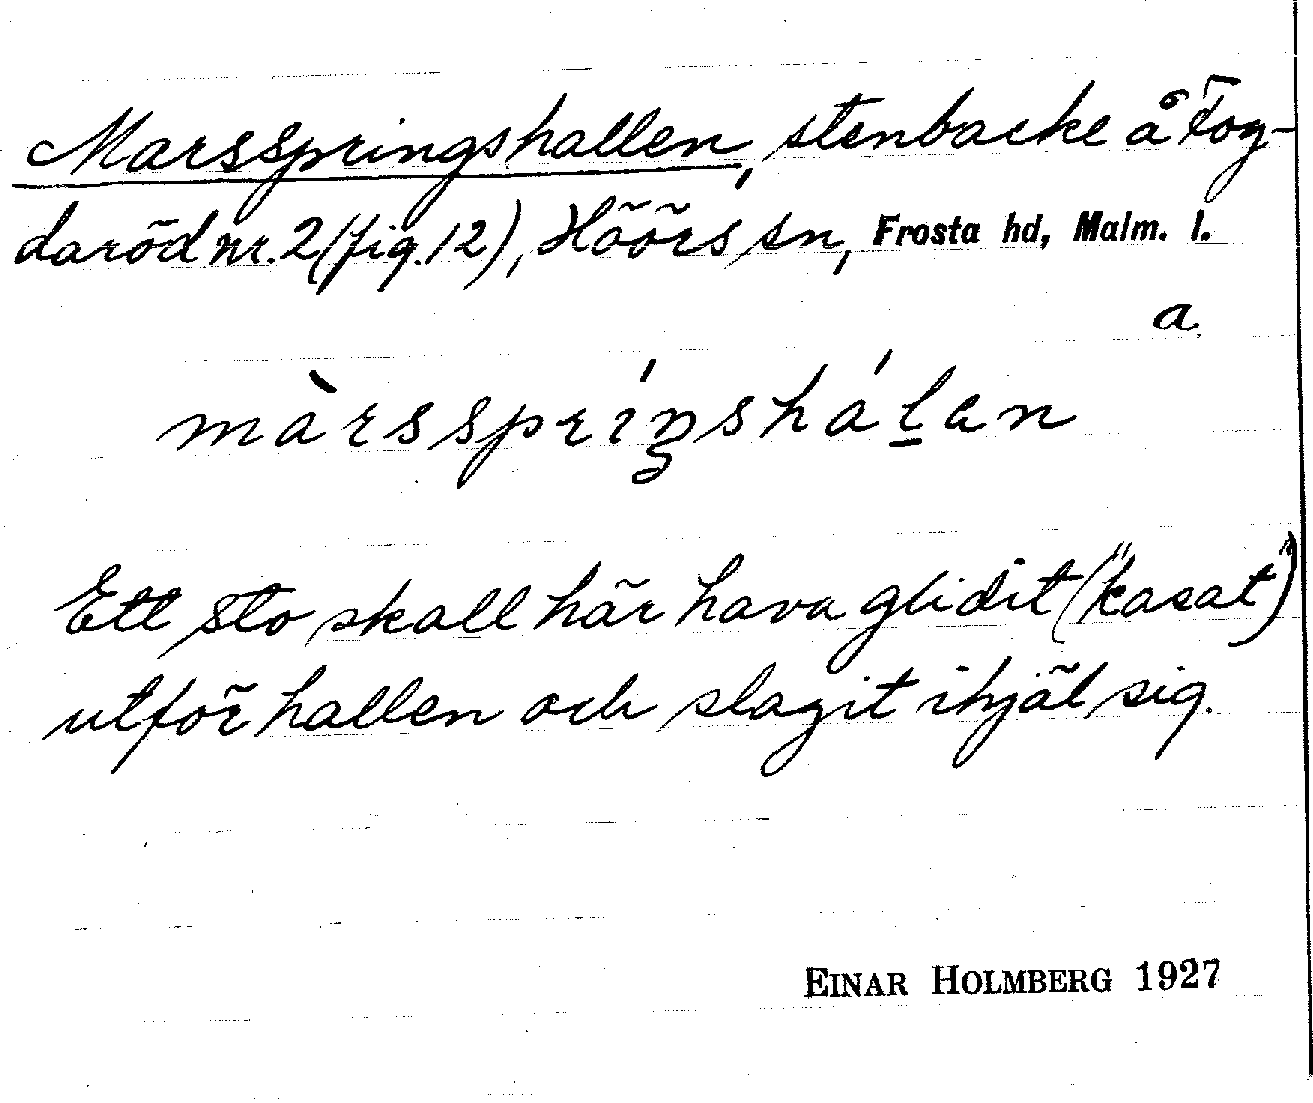 Marsspringshallen, stenbacke å Fog-
daröd nr. 2 (fig. 12), Höörs sn, Frosta hd, Malm. l.
a.
màrsspríŋshálan
Ett sto skall här hava glidit ("kasat")
utför hallen och slagit ihjäl sig.
EINAR HOLMBERG 1927